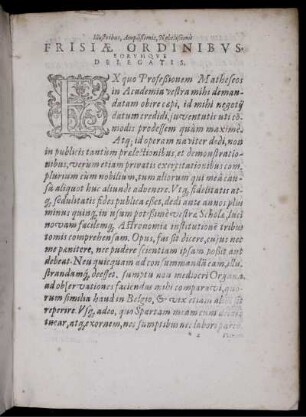 Illustribus, Amplissimis, Nobilissimis
FRISIÆ ORDINIBVS,
EORVMQVE
DELEGATIS.
EX quo Professionem Matheseos
in Academia vestra mihi deman-
datam obire cœpi, id mihi negotij
datum credidi, juventutis uti cõ-
modis prodessem quàm maximè.
Atq; id operam naviter dedi, non
in publicis tantum prælectionibus, et demonstratio-
nibus, verum etiam privatis exercitationibus com-
plurium cum nobilium, tum aliorum qui meâ cau-
sâ aliquot huc aliunde advenere. Utq; fidelitatis at-
q; sedulitatis fides publica esset, dedi ante annos plus
minus quinq; in usum potissimũ vestræ Scholæ, luci
novam facilemq; Astronomiæ institutionẽ tribus
tomis comprehensam. Opus, fas sit dicere, cujus nec
me pœnitere, nec pudere scientiam ipsam possit aut
debeat. Neu quicquam ad consummandã eam, illu-
strandamq; deesset, sumptu non mediocri Organa
ad observationes faciendas mihi comparavi, quo-
rum similia haud in Belgio, & vix etiam alibi sit
reperire. Usq; adeo, quo Spartam meam cum
atq; exorẽm, nec sumptibus nec labori